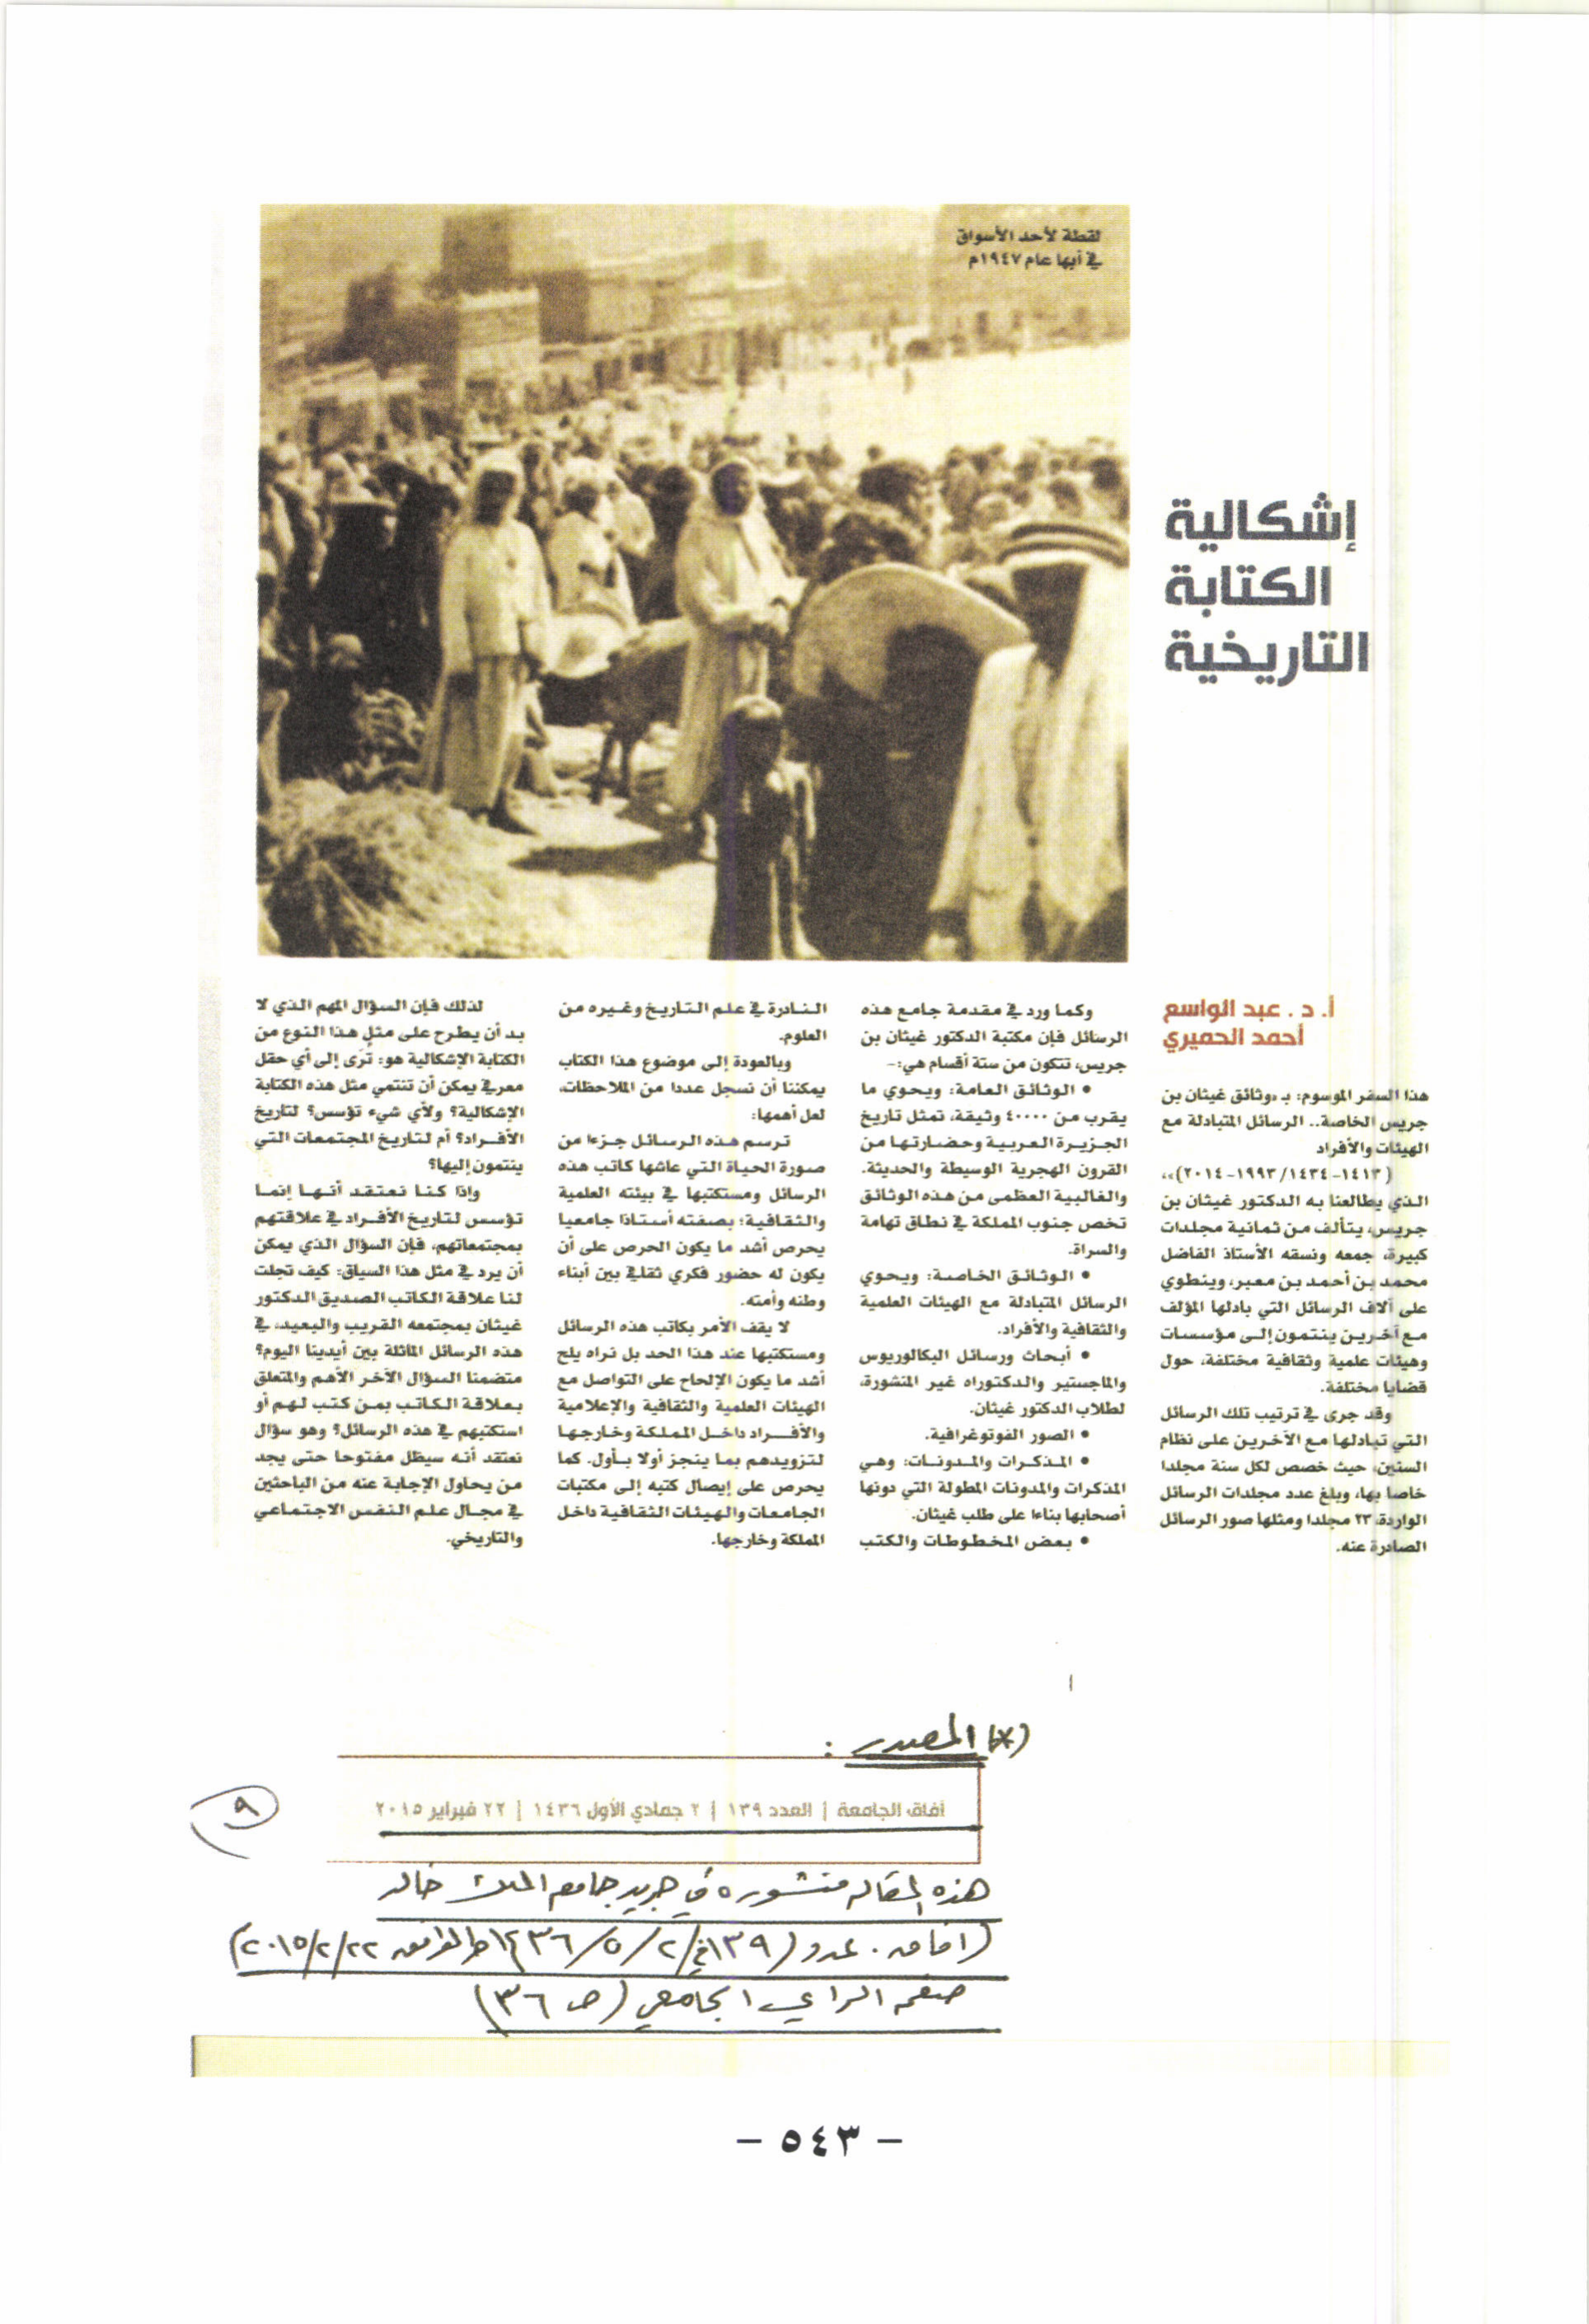 لقطة لأحد الأسواق
في أبها عام ١٩٤٧م
إشكالية
الكتابة
التاريخية
أ. د. عبد الواسع
أحمد الحميري
هذا السفر الموسوم: بـ «وثائق غيثان بن
جريس الخاصة.. الرسائل المتبادلة مع
الهيئات والأفراد
(١٤١٣-١٤٣٤/ ١٩٩٣-٢٠١٤)»،
الذي يطالعنا به الدكتور غيثان بن
جريس، يتألف من ثمانية مجلدات
كبيرة، جمعه ونسقه الأستاذ الفاضل
محمد بن أحمد بن معبر، وينطوي
على آلاف الرسائل التي بادلها المؤلف
مع آخرين ينتمون إلى مؤسسات
وهيئات علمية وثقافية مختلفة، حول
قضايا مختلفة.
وقد جرى في ترتيب تلك الرسائل
التي تبادلها مع الآخرين على نظام
السنين، حيث خصص لكل سنة مجلدا
خاصا بها، وبلغ عدد مجلدات الرسائل
الواردة، ٢٣ مجلدا ومثلها صور الرسائل
الصادرة عنه.
وكما ورد في مقدمة جامع هذه
الرسائل فإن مكتبة الدكتور غيثان بن
جريس، تتكون من ستة أقسام هي:-
• الوثائق العامة: ويحوي ما
يقرب من ٤٠٠٠٠ وثيقة، تمثل تاريخ
الجزيرة العربية وحضارتها من
القرون الهجرية الوسيطة والحديثة.
والغالبية العظمى من هذه الوثائق
تخص جنوب المملكة في نطاق تهامة
والسراة.
• الوثائق الخاصة: ويحوي
الرسائل المتبادلة مع الهيئات العلمية
والثقافية والأفراد.
• أبحاث ورسائل البكالوريوس
والماجستير والدكتوراه غير المنشورة،
لطلاب الدكتور غيثان.
• الصور الفوتوغرافية.
• المذكرات والمدونات: وهي
المذكرات والمدونات المطولة التي دونها
أصحابها بناءا على طلب غيثان.
• بعض المخطوطات والكتب
النادرة في علم التاريخ وغيره من
العلوم.
وبالعودة إلى موضوع هذا الكتاب
يمكننا أن نسجل عددا من الملاحظات،
لعل أهمها:
ترسم هذه الرسائل جزءا من
صورة الحياة التي عاشها كاتب هذه
الرسائل ومستكتبها في بيئته العلمية
والثقافية؛ بصفته أستاذا جامعيا
يحرص أشد ما يكون الحرص على أن
يكون له حضور فكري ثقافي بين أبناء
وطنه وأمته.
لا يقف الأمر بكاتب هذه الرسائل
ومستكتبها عند هذا الحد بل نراه يلح
أشد ما يكون الإلحاح على التواصل مع
الهيئات العلمية والثقافية والإعلامية
والأفراد داخل المملكة وخارجها
لتزويدهم بما ينجز أولا بأول. كما
يحرص على إيصال كتبه إلى مكتبات
الجامعات والهيئات الثقافية داخل
المملكة وخارجها.
لذلك فإن السؤال المهم الذي لا
بد أن يطرح على مثل هذا النوع من
الكتابة الإشكالية هو: ترى إلى أي حقل
معرفي يمكن أن تنتمي مثل هذه الكتابة
الإشكالية؟ ولأي شيء تؤسس؟ لتاريخ
الأفراد؟ أم لتاريخ المجتمعات التي
ينتمون إليها؟
وإذا كنا نعتقد أنها إنما
تؤسس لتاريخ الأفراد في علاقتهم
بمجتمعاتهم، فإن السؤال الذي يمكن
أن يرد في مثل هذا السياق: كيف تجلت
لنا علاقة الكاتب الصديق الدكتور
غيثان بمجتمعه القريب والبعيد، في
هذه الرسائل الماثلة بين أيدينا اليوم؟
متضمنا السؤال الآخر الأهم والمتعلق
بعلاقة الكاتب بمن كتب لهم أو
استكتبهم في هذه الرسائل؟ وهو سؤال
نعتقد أنه سيظل مفتوحا حتى يجد
من يحاول الإجابة عنه من الباحثين
في مجال علم النفس الاجتماعي
والتاريخي.
(*) المصدر :
آفاق الجامعة | العدد ١٣٩ | ٢ جمادي الأول ١٤٣٦ | ٢٢ فبراير ٢٠١٥
٩
هذه المقاله منشوره في جريدة جامعة الملك خالد
(آفاق. عدد (١٣٩) في ٢/ ٥/ ١٤٣٦هـ الموافق ٢٢/ ٢/ ٢٠١٥)
صفحة الرأي الجامعي (ص ٣٦)
- ٥٤٣ -